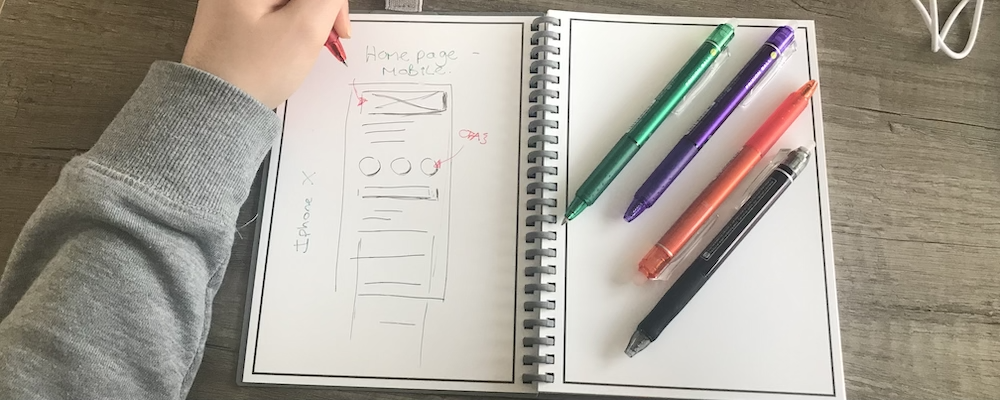 Homepage -
Mobile.
Iphone X